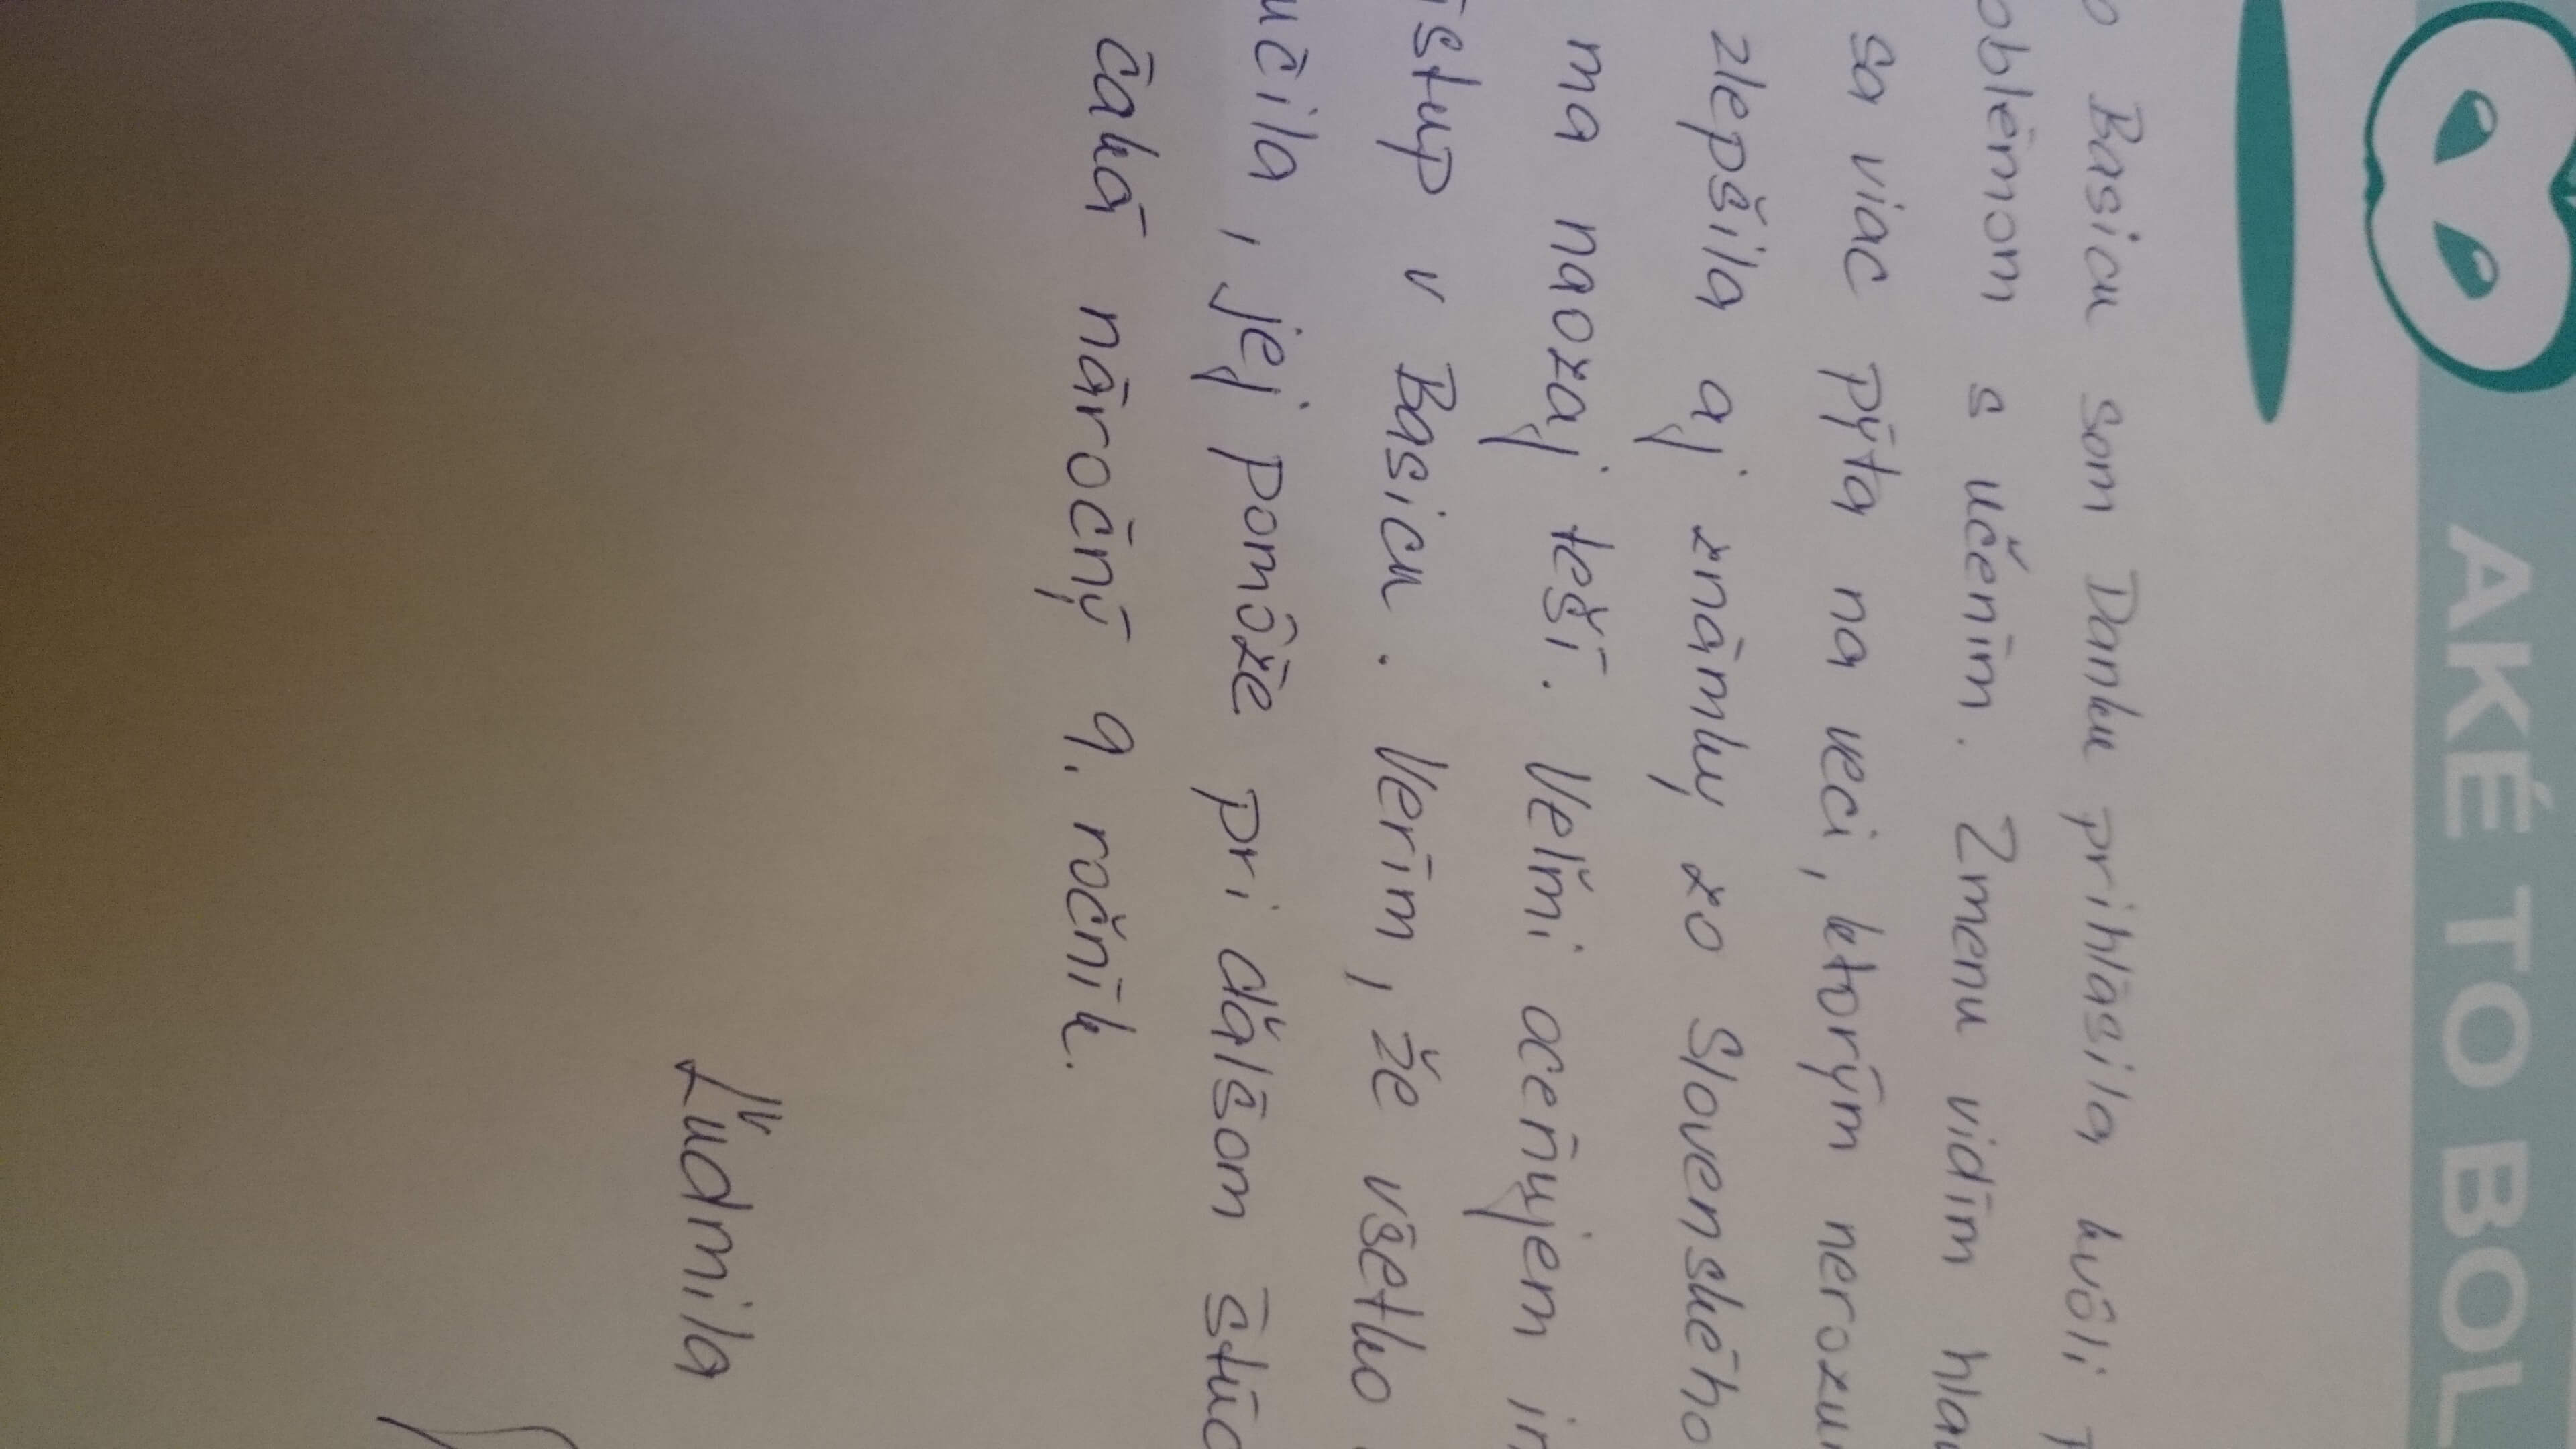 AKÉ TO BOL
Basicu som Danku prihlásila kvôli
oblémom s učením. Zmenu vidím hla
sa viac pýta na veci, ktorým nerozu
zlepšila aj známky zo Slovenského
ma naozaj teší. Veľmi oceňujem in
ístup v Basicu. Verím, že všetko
učila, jej pomôže pri ďalšom štúd
čaká náročný 9. ročník.
Ľudmila